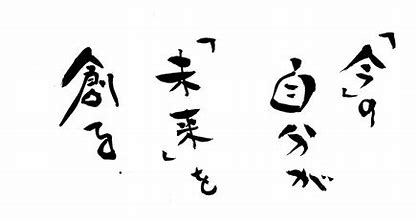 「今」の
自分が
「未来」を
創る